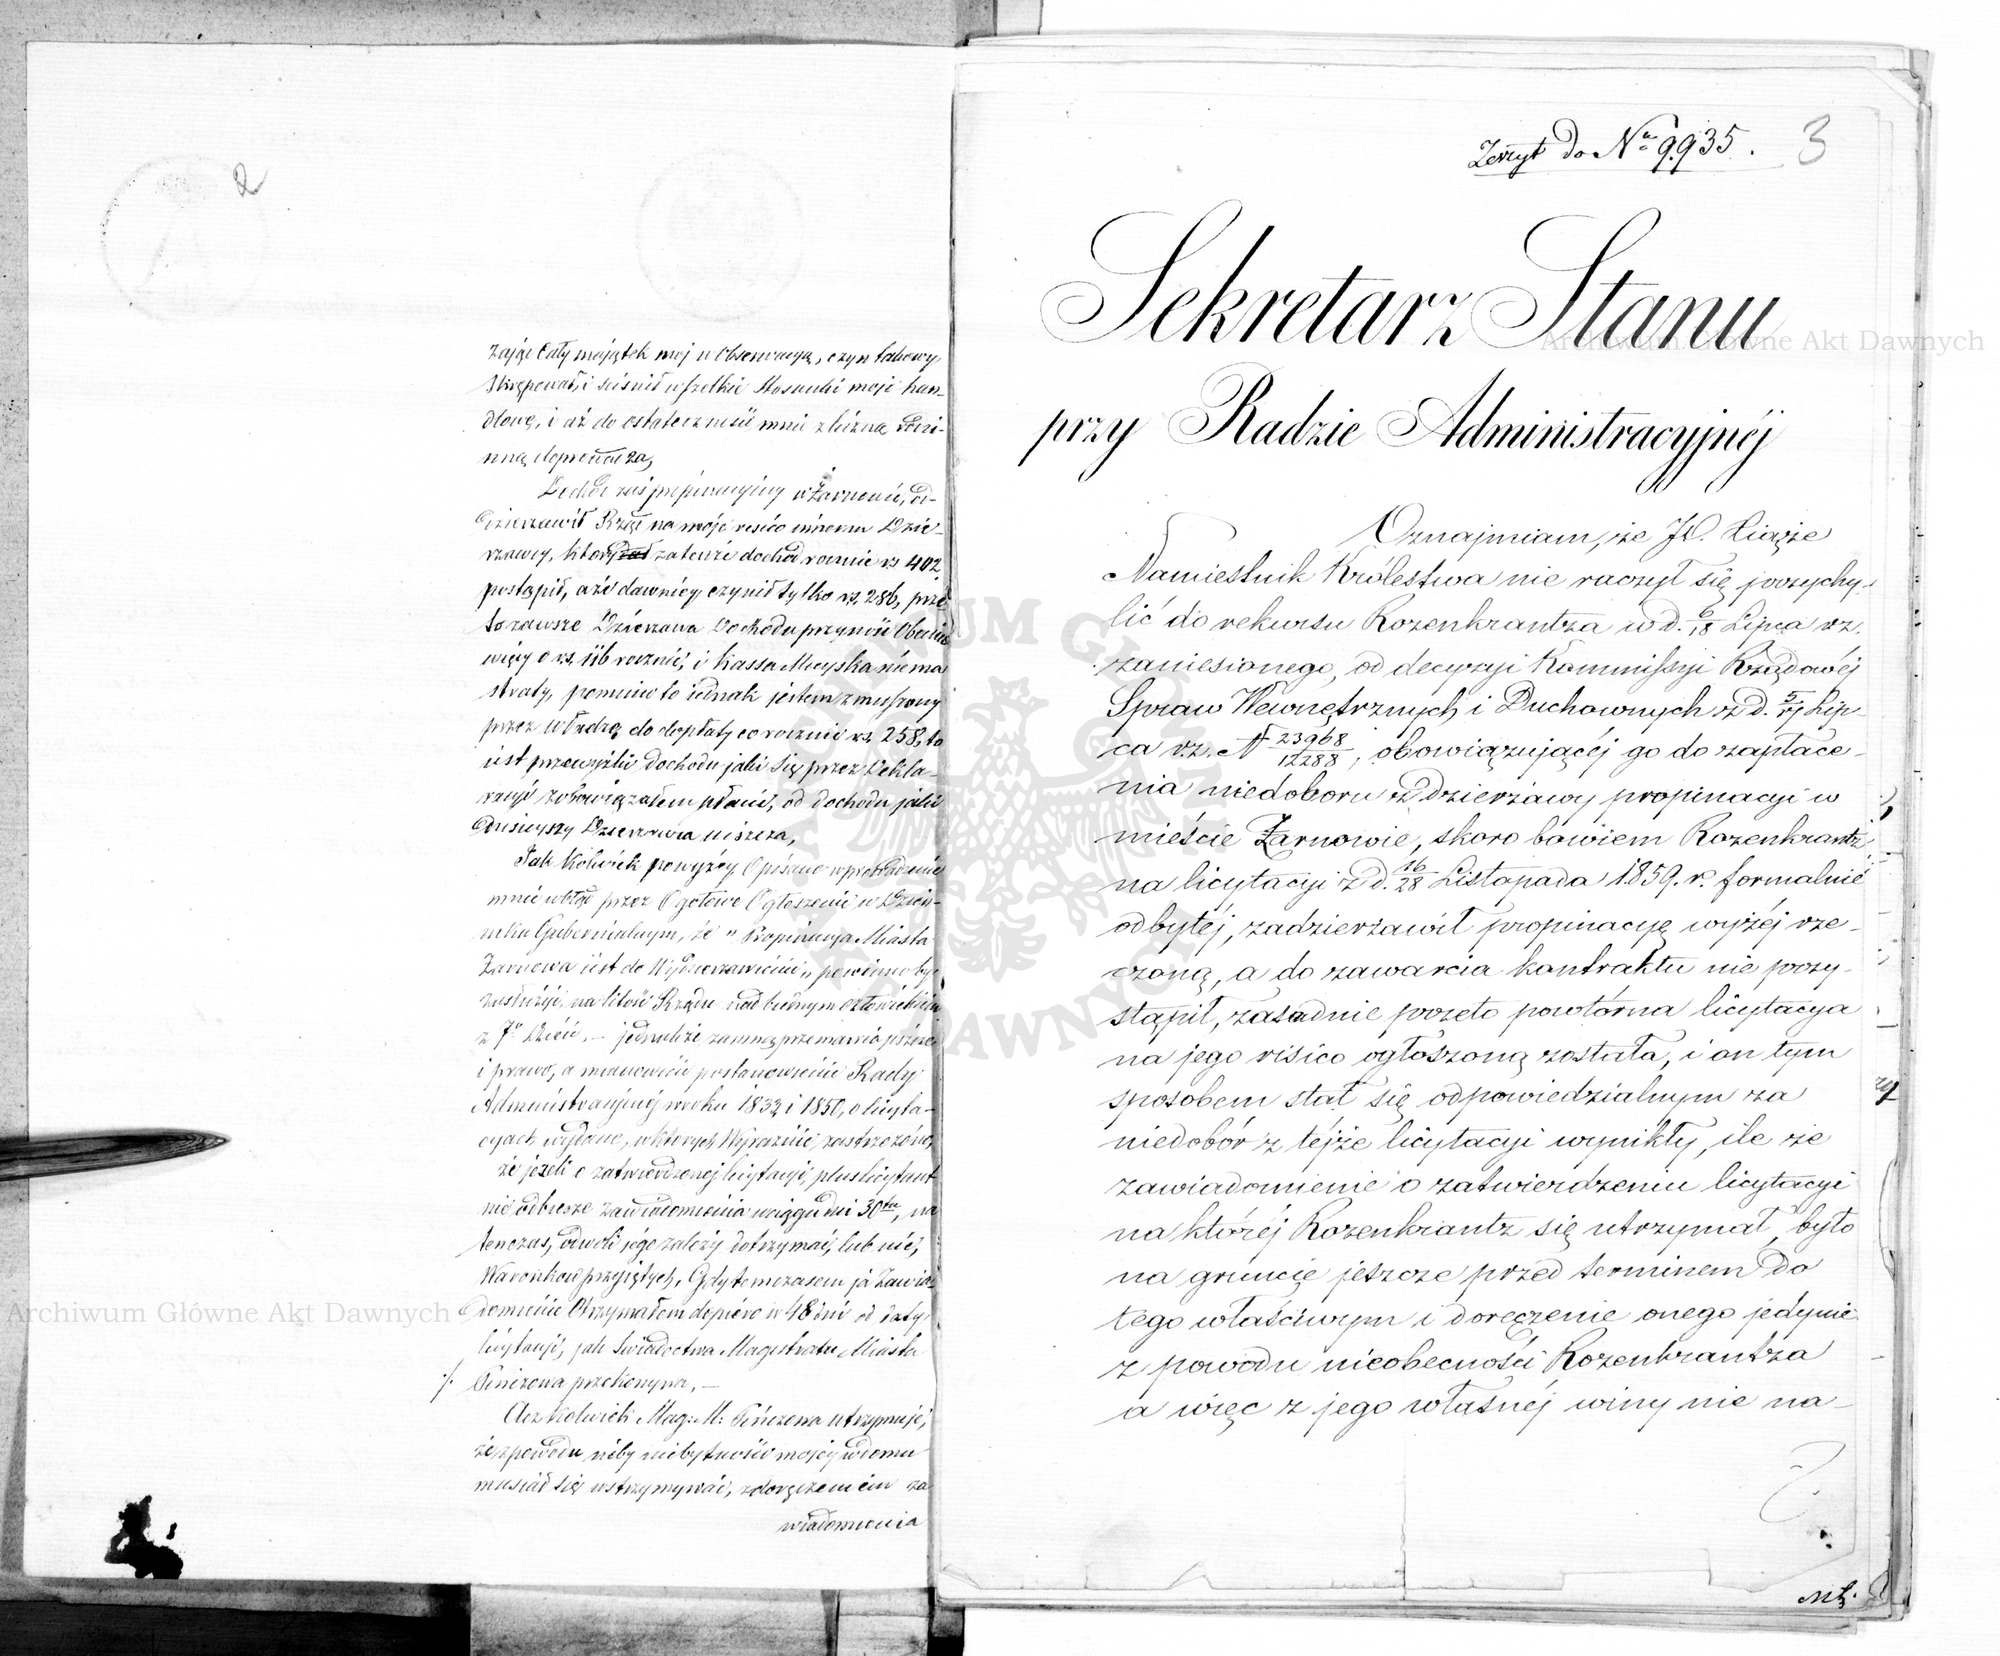 2
zając cały majątek mój w Obserwacyą, czyn takowy
skrępował, i ściśnił wszelkie stosunki moje han-
dlowe, i aż do ostateczności mnie z liczną rodzi-
nną doprowadza,
Dochód zaś propinacyjny w Żarnowie, od-
dzierżawił Rząd na moje resico innemu Dzie-
rzawcy, który zatenże dochód rocznie rs 402
postąpił, a że dawniéy czynił tylko rs. 286, prze
to zawsze Dzierzawa Dochodu przynosi Obecnie
więcy o rs. 116 rocznie, i Kassa Mieyska niema
straty, pomimo to jednak jestem zmuszony
przez Władzę do dopłaty co rocznie rs. 258, to
iest przewyżki dochodu jaki się przez Dekla-
racyę zobowiązałem płacić, od dochodu jaki
dzisieyszy Dzierzawca uiszcza,
Jak kolwiek powyżéy Opisane wprowadzenie
mnie wbłąd przez Ogołowe Ogłoszenie w Dzien-
niku Gubernialnym, że „ Propinacya Miasta
Żarnowa iest do Wydzierzawienia „ powinno by
zasłużyć na litość Rządu nad biednym człowiekiem
z 7r Dzieci, — jednakże zamną przemawia jeszcze
i prawo, a mianowicie postanowienie Rady
Administracyjnéj w roku 1833 i 1850, o licyta-
cyach wydane, w których Wyraźnie zastrzeżono,
że jeżeli o zatwierdzonej licytacyi, pluslicytant
nie odbierze zawiadomienia wciągu dni 30tu, na
tenczas, od woli jégo zależy dotrzymać, lub nie,
Waronków przyiętych, Gdy tem czasem ja Zawia
domienie Otrzymałem dopiéro w 48 dni od daty
licytacyi, jak świadectwa Magistratu Miasta
./. Pinczowa przekonywa, —
Acz kolwiek Mag: M: Pińczowa utrzymuje,
że z powodu niby niebytności mojéy wdomu
musiał się wstrzymywać, z doręczeniem za
wiadomienia
Zeszyt do No 9935. 3
Sekretarz Stanu
przy Radzie Administracyjnéj
Oznajmiam, że JO. Xiążę
Namiestnik Królestwa nie raczył się przychy-
lić do rekursu Rozenkrantza w d. 6/18 Lipca rz.
zaniesionego, od decyzyi Kommissyi Rządowéj
Spraw Wewnętrznych i Duchownych z d. 5/17 Lip-
ca r.z. N 23968/12288, obowiązującéj go do zapłace-
nia niedoboru z dzierżawy propinacyi w
mieście Żarnowie, skoro bowiem Rozenkrantz
na licytacyi z d. 16/28 Listopada 1859. r. formalnie
odbytéj, zadzierżawił propinacyę wyżéj rze-
czoną, a do zawarcia kontraktu nie przy-
stąpił, zasadnie przeto powtórna licytacya
na jego risico ogłoszoną została, i on tym
sposobem stał się odpowiedzialnym za
niedobór z tejże licytacyi wynikły, ile że
zawiadomienie o zatwierdzeniu licytacyi
na któréj Rozenkrantz się utrzymał, było
na gruncie jeszcze przed terminem do
tego właściwym i doręczenie onego jedynie
z powodu nieobecności Rozenkrantza
a więc z jego własnéj winy nie na-
Archiwum Główne Akt Dawnych
Archiwum Główne Akt Dawnych